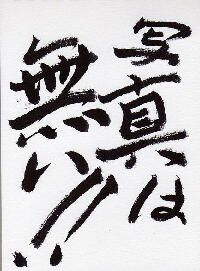 写真は
無い!!